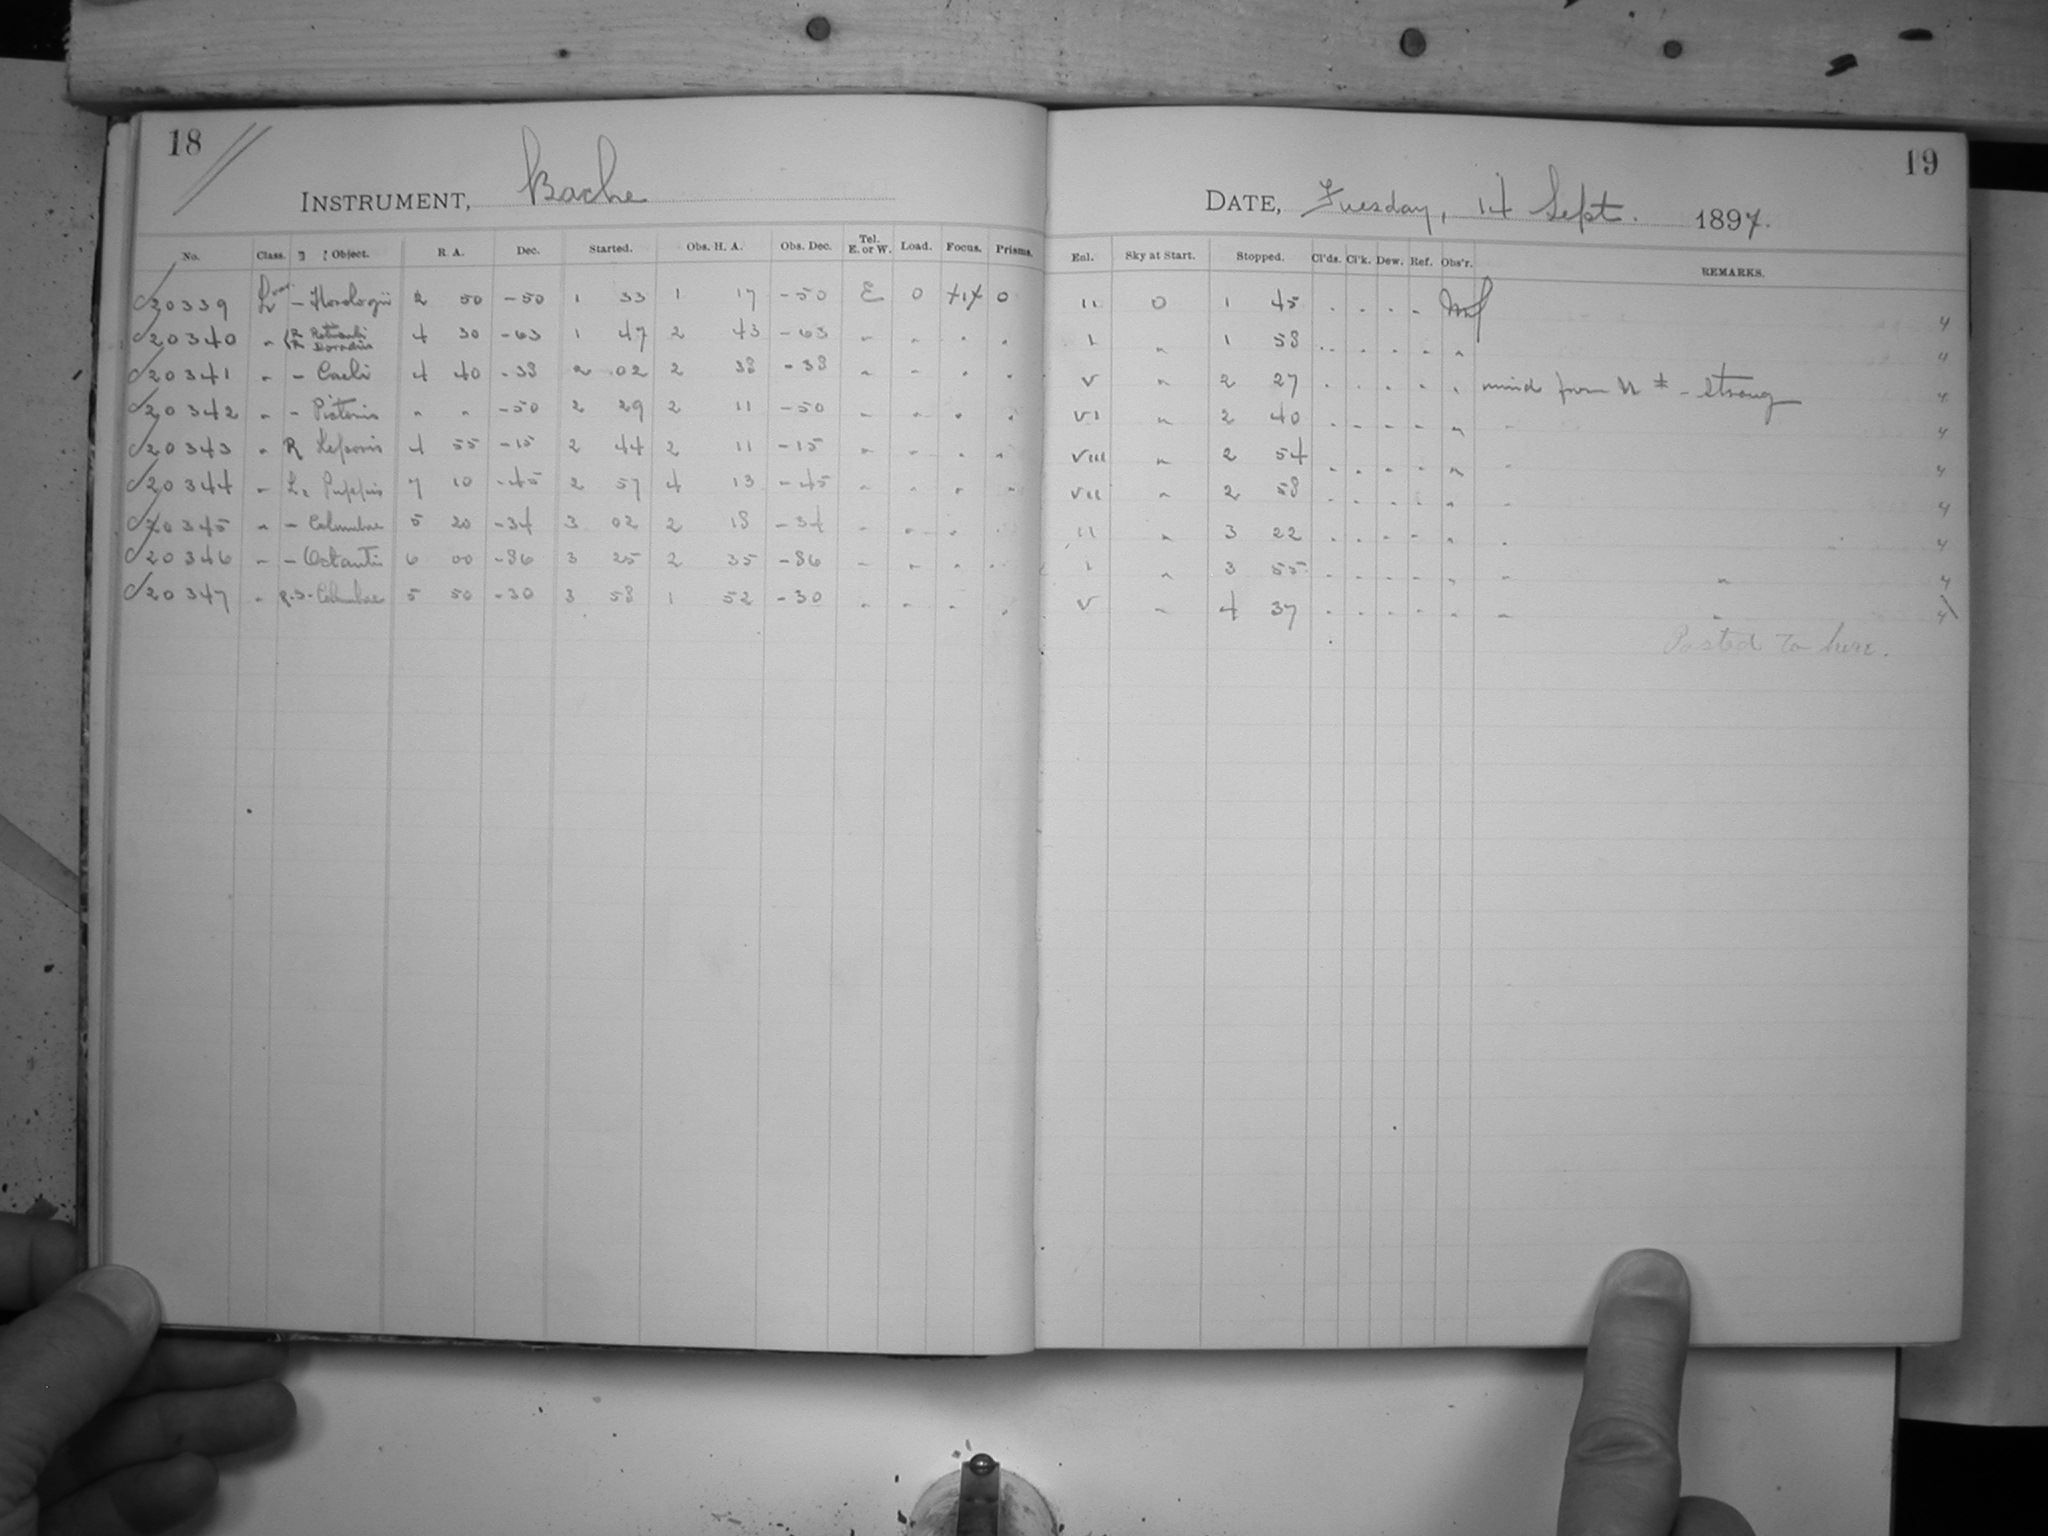 18
INSTRUMENT, Bache
No. Class. Object. R. A. Dec. Started. Obs. H. A. Obs. Dec. Tel. E. or W. Load. Focus. Prisms.
20339 L - Horologii 2 50 -50 1 33 1 17 -50 E 0 0
20340 " R Reticuli R Doradus 4 30 -63 1 47 2 43 -63 " " " "
20341 " - Caeli 4 40 -38 2 02 2 38 -38 " " " "
20342 " - Pictoris " " -50 2 29 2 11 -50 " " " "
20343 " R Leporis 4 55 -15 2 44 2 11 -15 " " " "
20344 " L2 Puppis 7 10 -45 2 57 4 13 -45 " " " "
20345 " - Columbae 5 20 -34 3 02 2 18 -34 " " "
20346 " - Octantis 6 00 -86 3 25 2 35 -86 " " " "
20347 " R.S. Columbae 5 50 -30 3 58 1 52 -30 " " " "
19
DATE, Tuesday, 14 Sept. 1897.
Enl. Sky at Start. Stopped. Cl'ds. Cl'k. Dew. Ref. Obs'r. REMARKS.
II 0 1 45 " " " " 4
I " 1 58 " " " " " 4
V " 2 27 " " " " " wind from - strong 4
VI " 2 40 " " " " " " 4
VIII " 2 54 " " " " " " 4
VII " 2 58 " " " " " " 4
II " 3 22 " " " " " " 4
I " 3 55 " " " " " " " 4
V " 4 37 " " " " " " " 4
Posted to here.